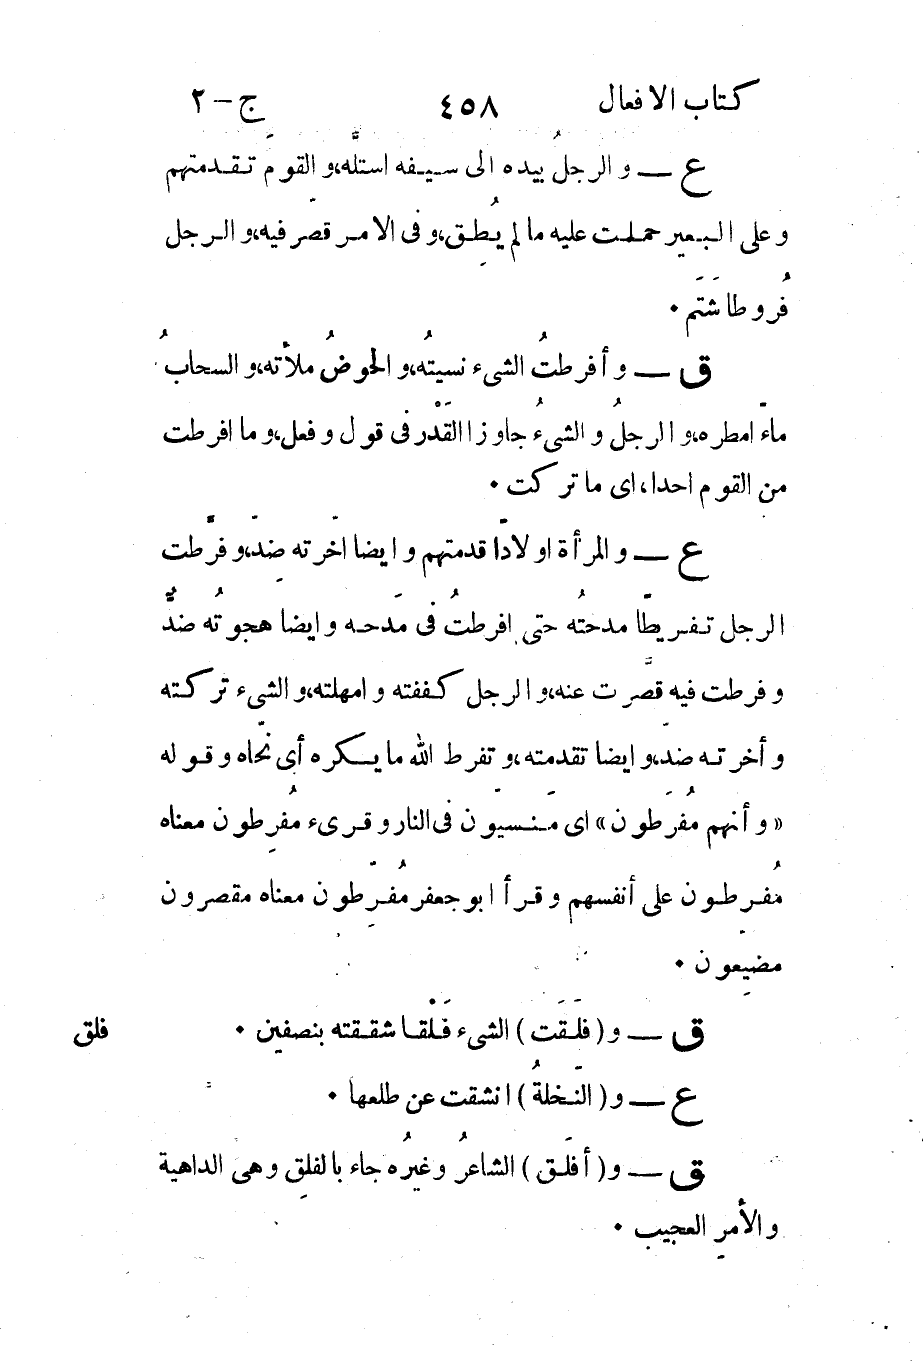 كتاب الافعال ٤٥٨ ج-٢
ع — و الرجلُ بيده الى سيفه استلّه، و القومَ تقدمتهم
و على البعير حملت عليه ما لم يُطِق، و فى الامر قصّر فيه، و الرجل
فُروطا شَتَم ٠
ق — و أفرطتُ الشىء نسيتُه، و الحوضُ ملأته، و السحابُ
ماء امطره، و الرجلُ و الشىءُ جاوزا القَدْر فى قول و فعل، و ما افرطت
من القوم احدا، اى ما تركت ٠
ع — و المرأة اولادًا قدمتهم و ايضا اخّرته ضدّ، و فرّطت
الرجل تفريطًا مدحتُه حتى افرطتُ فى مَدحِه و ايضا هجوتُه ضدٌّ
و فرطت فيه قصّرت عنه، و الرجل كففته و امهلته، و الشىء تركته
و أخرته ضد، و ايضا تقدمته، و تفرط الله ما يكره أى نحّاه و قوله
«و أنهم مُفرَطون» اى منسيون فى النار و قرىء مُفرِطون معناه
مُفرِطون على أنفسهم و قرأ ابو جعفر مُفرِّطون معناه مقصرون
مضيّعون ٠
ق — و (فلَقَت) الشىء فَلْقا شققته بنصفين ٠ فلق
ع — و (النّخلةُ) انشقت عن طلعها ٠
ق — و (أفلَق) الشاعرُ و غيرُه جاء بالفلِق و هى الداهية
و الأمرِ العجيب ٠